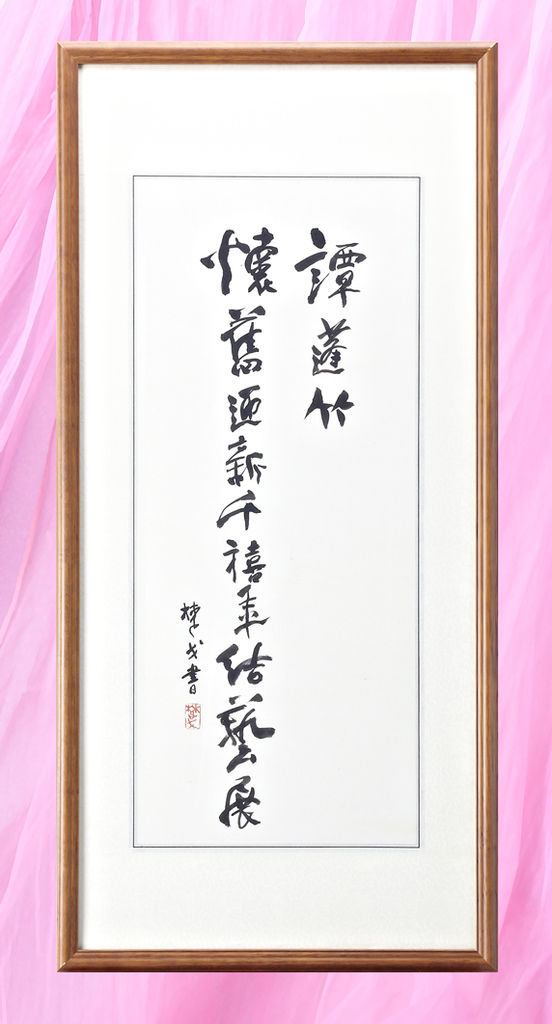 譚蓬竹
懷舊迎新千禧年結藝展
楚戈書